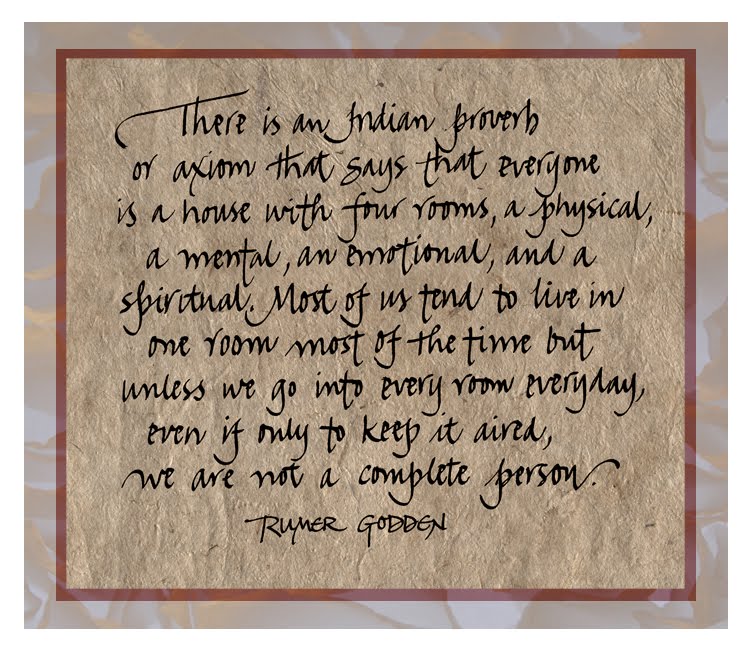 There is an Indian proverb
or axiom that says that everyone
is a house with four rooms, a physical,
a mental, an emotional, and a
spiritual. Most of us tend to live in
one room most of the time but
unless we go into every room everyday,
even if only to keep it aired,
we are not a complete person.
RUMER GODDEN